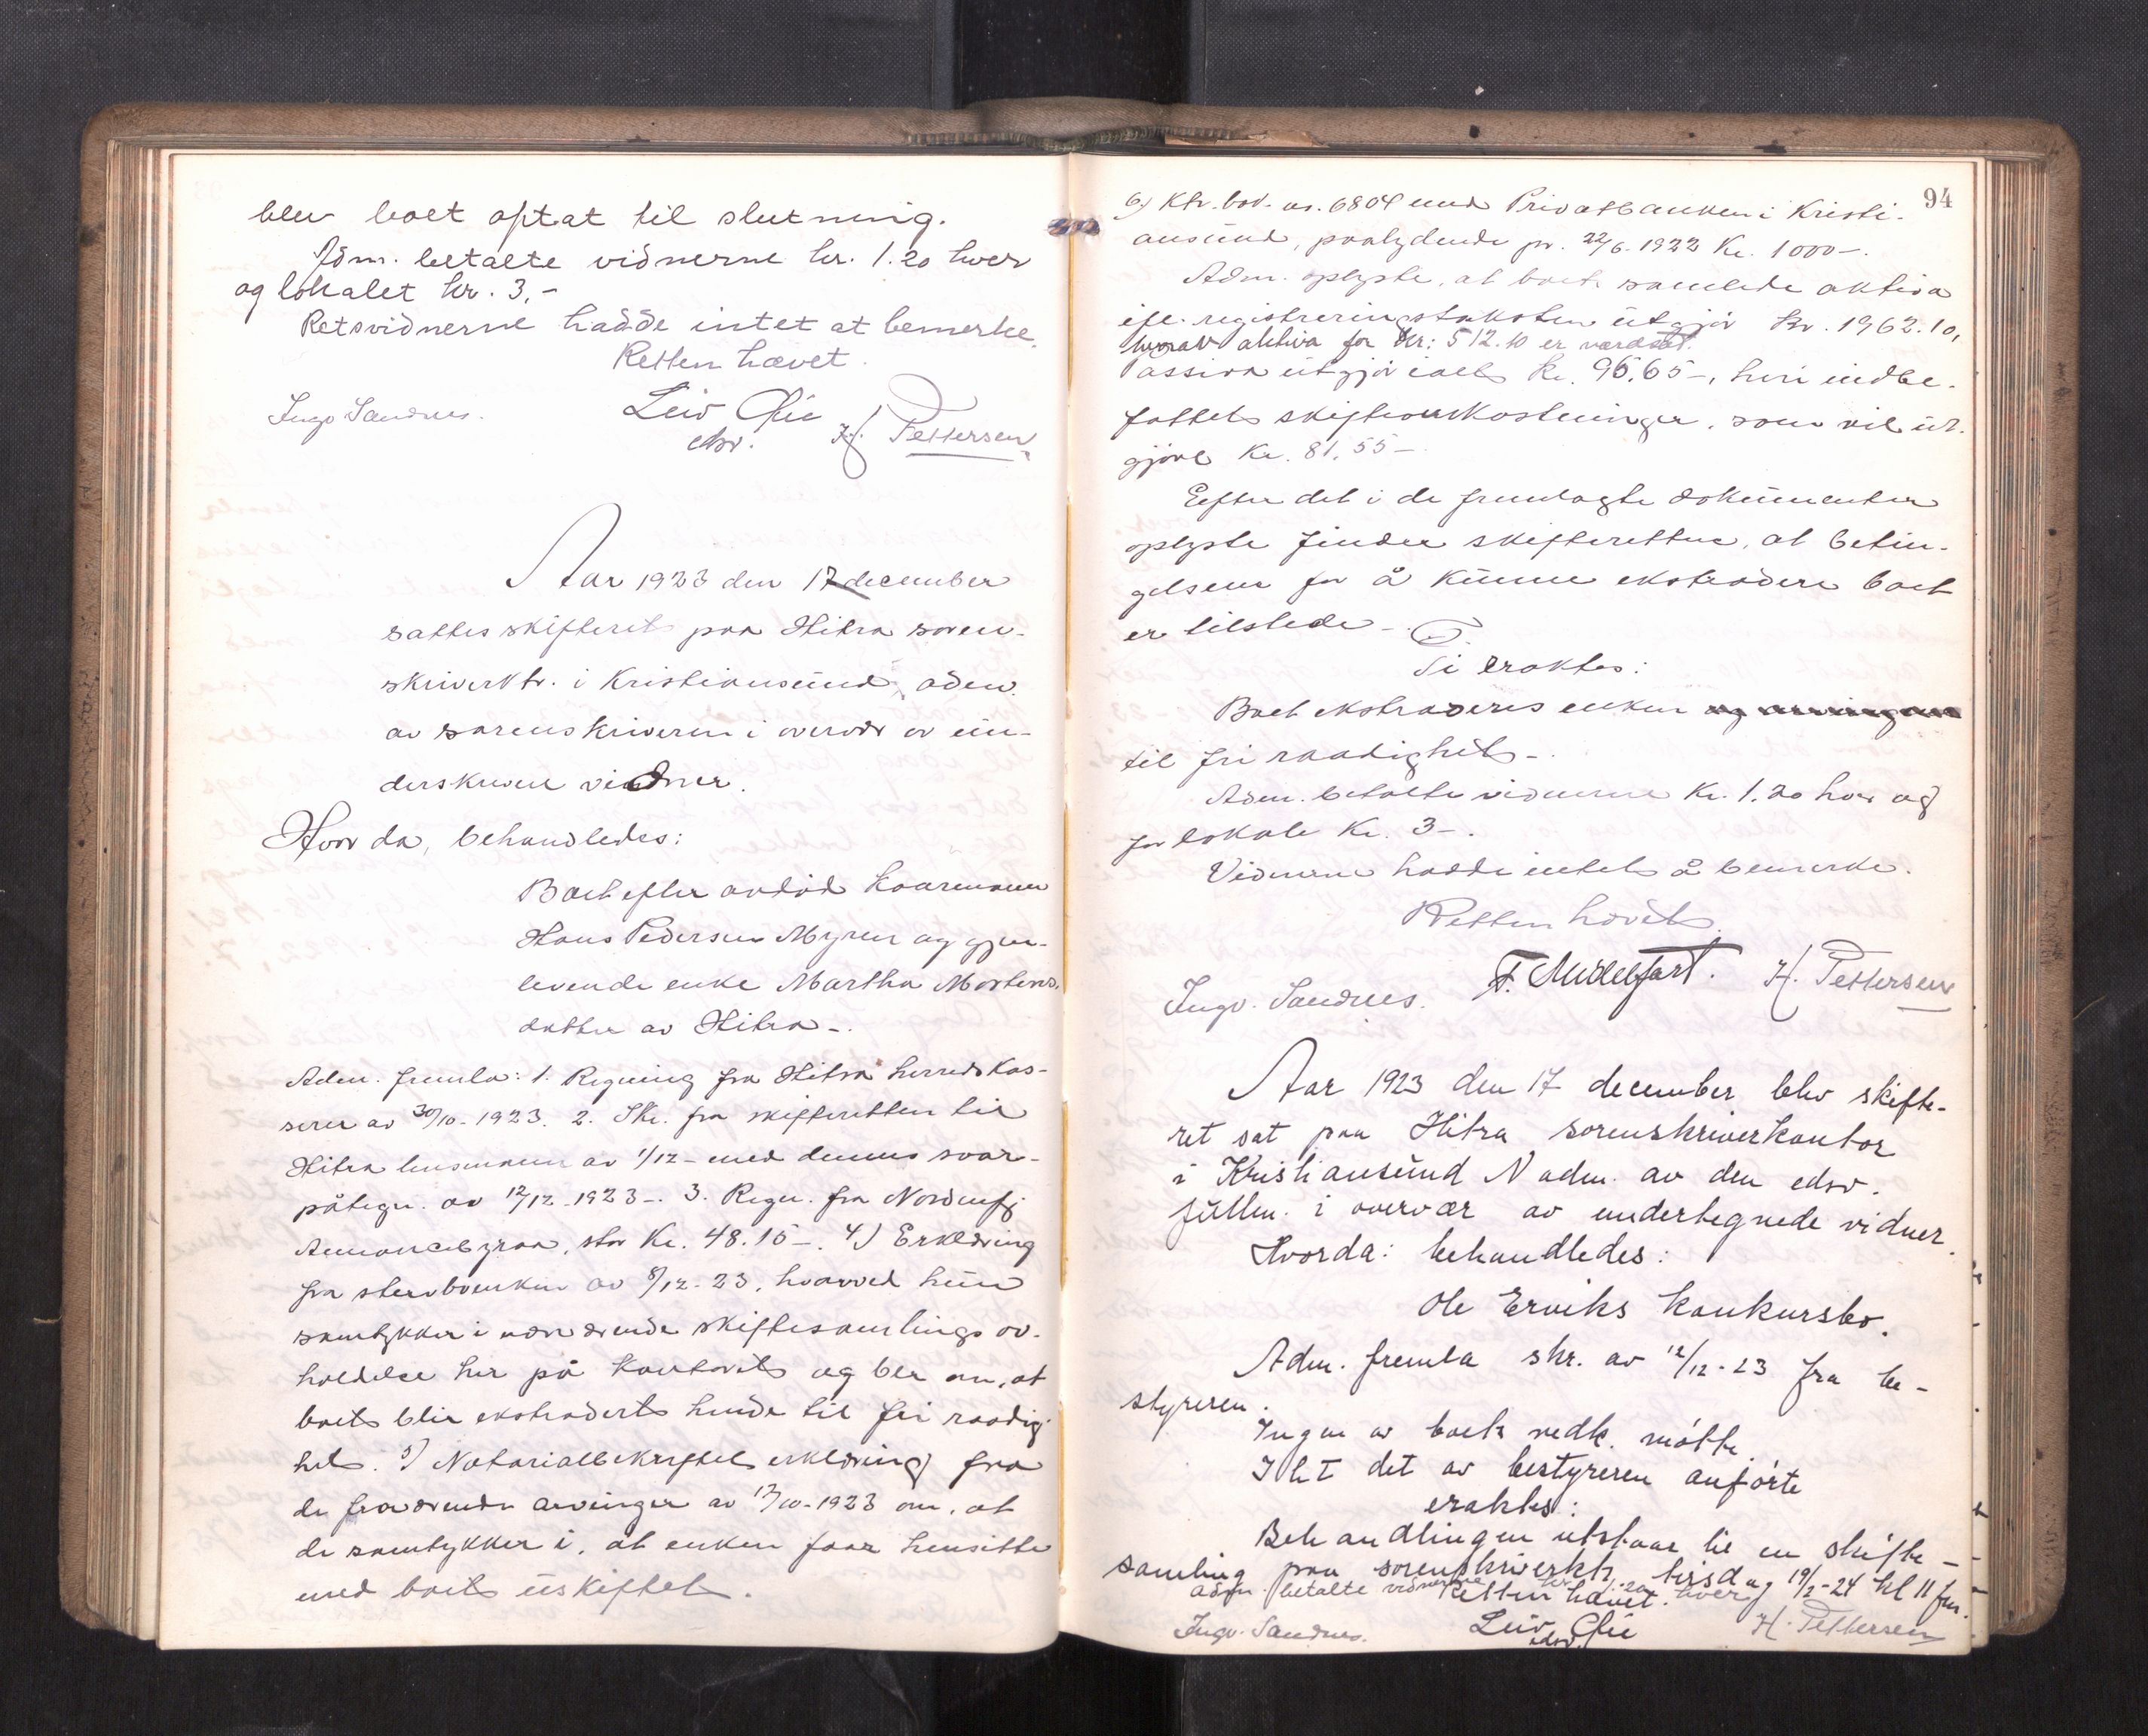 blev boet optat til slutning.
Adm. betalte vidnerne kr. 1.20 hver
og lokalet kr. 3,-
Retsvidnerne hadde intet at bemerke.
Retten hævet.
Ingv. Sandnes. Leiv
edsv. H. Pettersen
Aar 1923 den 17 december
sattes skifteret paa Hitra soren-
skriverktr. i Kristiansund, adm.
av sorenskriveren i overvær av un-
derskrevne vidner.
Hvor da, behandledes:
Boet efter avdød kaarmann
Hans Pedersen Myren og gjen-
levende enke Martha Mortens-
datter av Hitra-.
Adm. fremla: 1. Regning fra Hitra herredskas-
serer av 30/10-1923. 2. Skr. fra skifteretten til
Hitra lensmann av 1/12- med dennes svar-
påtegn. av 12/12-1923-. 3. Regn. fra Nordenfj
Annoncebyraa, stor Kr. 48.15-. 4) Erklæring
fra stervboenken av 8/12-23, hvorved hun
samtykker i nærværende skiftesamlings av-
holdelse her på kontoret og ber om, at
boet blir ekstradert hende til fri raadig-
het. 5) Notarialbekræftet erklæring fra
de fraværende arvinger av 17/10-1923 om, at
de samtykker i, at enken faar hensitte
med boet uskiftet.
94
6) Ktr. bok nr. 6804 med Privatbanken i Kristi-
ansund, paalydende pr. 22/6-1922 Kr. 1000-.
Adm. oplyste, at boets samlede aktiva
efter registreringstaksten utgjør Kr. 1962.10,
hvorav aktiva for Kr: 512.10 er værdsat.
Passiva utgjør ialt Kr. 96.65-, heri indbe-
fattet skifteomkostninger, som vil ut-
gjøre Kr. 81.55-
Efter det i de fremlagte dokumenter
oplyste finder skifteretten, at betin-
gelsene for å kunne ekstradere boet
er tilstede-.
Ti eraktes:
Boet ekstraderes enken
til fri raadighet-.
Adm. betalte vidnerne Kr. 1.20 hver og
for lokale Kr. 3-.
Vidnerne hadde intet å bemerke.
Retten hævet.
Ingv. Sandnes. F. Middelfart. H. Pettersen
Aar 1923 den 17 december blev skifte-
ret sat paa Hitra sorenskriverkontor
i Kristiansund N adm. av den edsv.
fullm. i overvær av undertegnede vidner.
Hvorda: behandledes:
Ole Erviks konkursbo.
Adm. fremla skr. av 12/12-23 fra be-
styreren.
Ingen av boets vedk. møtte.
I h t det av bestyreren anførte
eraktes:
Behandlingen utstaar til en skifte-
samling paa sorenskriverktr. tirsdag 19/2-24 kl 11 fm.
Adm. betalte vidnerne kr. 1.20 hver
Retten hævet.
Ingv. Sandnes. Leiv
edsv. H. Pettersen